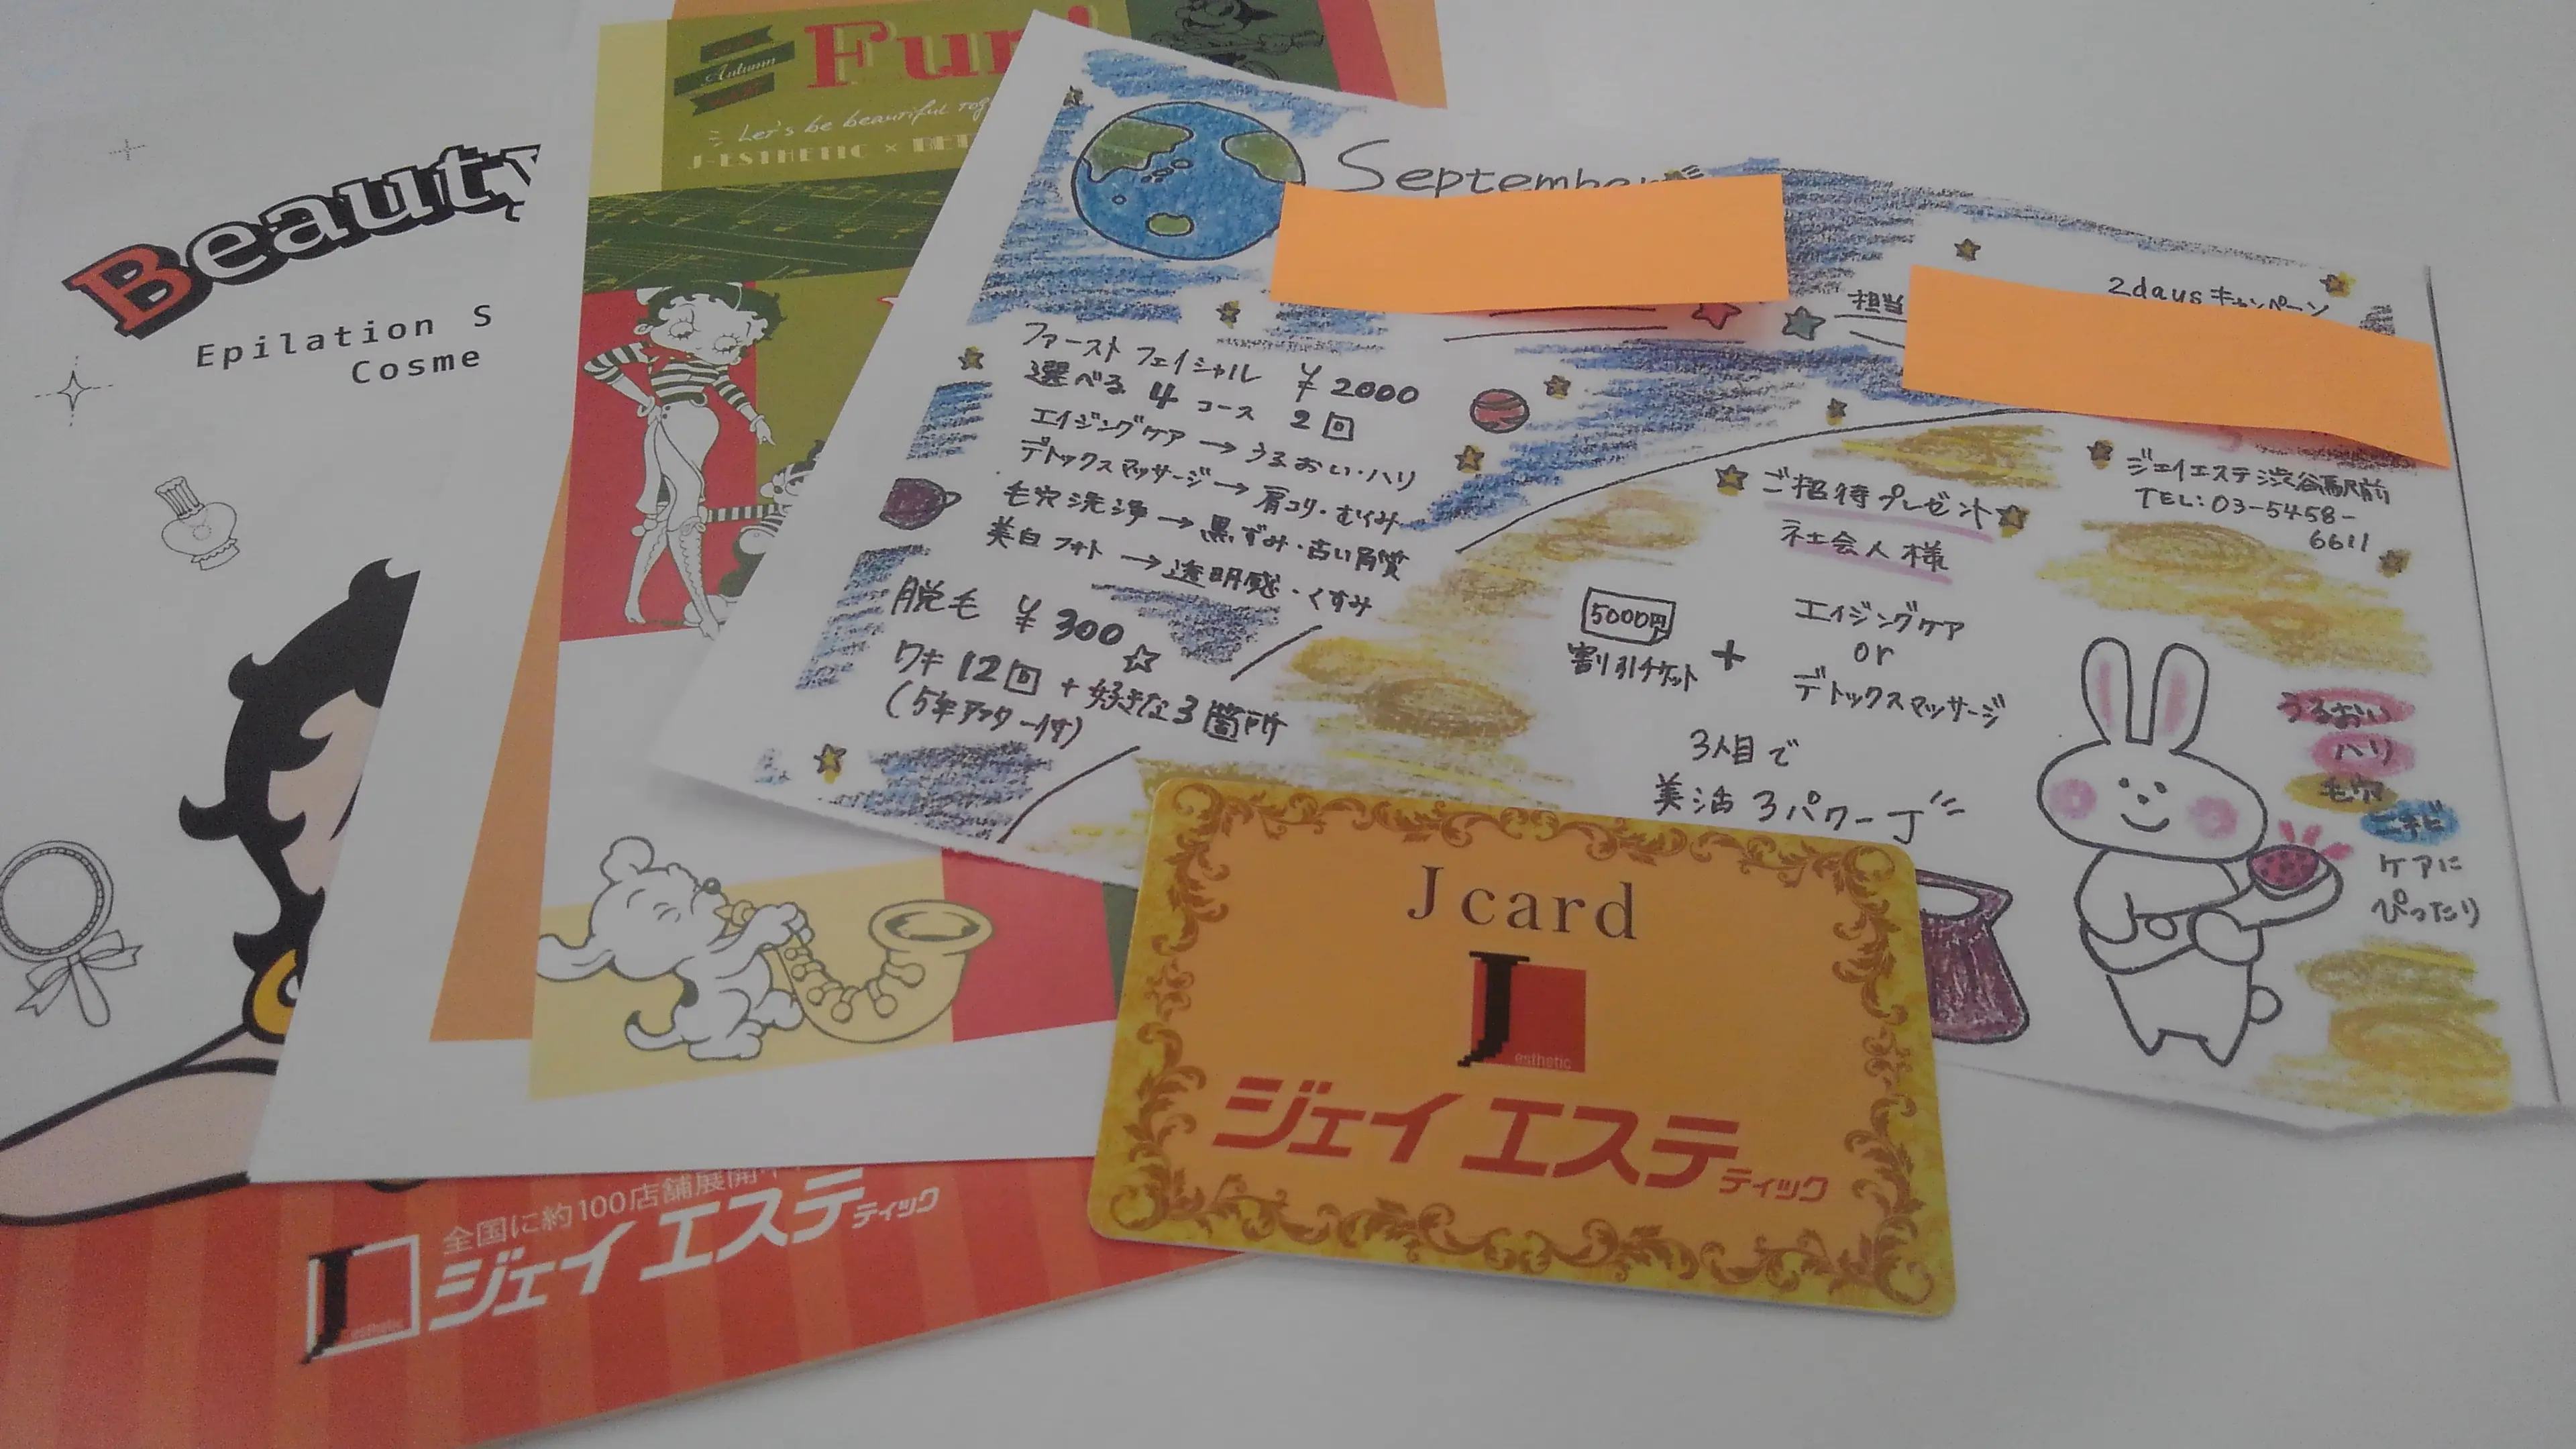 Beauty
Epilation S
Cosme
全国に約100店舗展開中
J
esthetic
ジェイエステティック
Autumn
Fun!
Let's be beautiful tog
J-ESTHETIC × BET
September
担当
2daysキャンペーン
ファーストフェイシャル ¥2000
選べる4コース 2回
エイジングケア→うるおい・ハリ
デトックスマッサージ→肩コリ・むくみ
毛穴洗浄→黒ずみ・古い角質
美白フォト→透明感・くすみ
脱毛 ¥300☆
ワキ12回+好きな3箇所
(5年アフター付)
ジェイエステ渋谷駅前
TEL:03-5458-
6611
ご招待プレゼント
社会人様
5000円
割引チケット
+
エイジングケア
or
デトックスマッサージ
3人目で
美活3パワー
うるおい
ハリ
毛穴
ニキビ
ケアに
ぴったり
J card
J
esthetic
ジェイエステティック